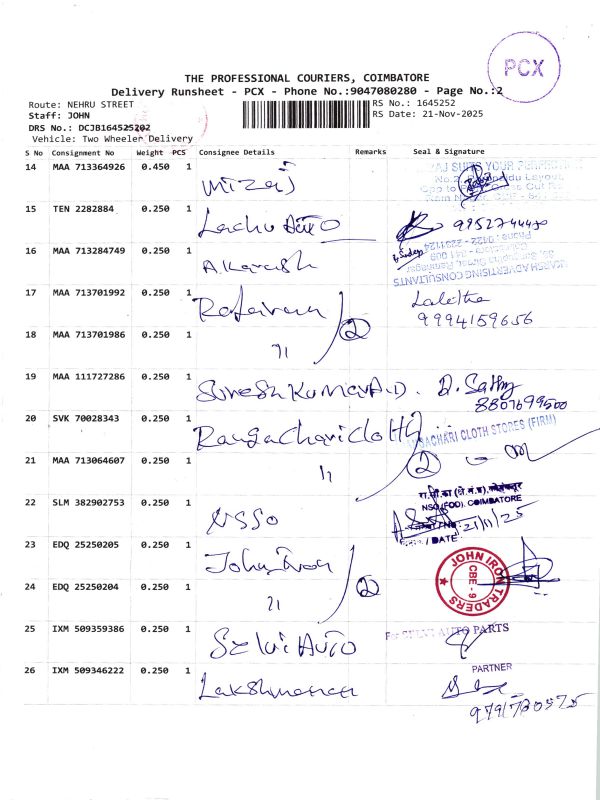 PCX
THE PROFESSIONAL COURIERS, COIMBATORE
Delivery Runsheet - PCX - Phone No.:9047080280 - Page No.:2
Route: NEHRU STREET
RS No.: 1645252
Staff: JOHN
RS Date: 21-Nov-2025
DRS No.: DCJB164525202
Vehicle: Two Wheeler Delivery
S No Consignment No Weight PCS Consignee Details Remarks Seal & Signature
14 MAA 713364926 0.450 1 Mizaj
SUITS YOUR
15 TEN 2282884 0.250 1 Lachu Auto 9952744450
16 MAA 713284749 0.250 1 A.Karash
ADVERTISING CONSULTANTS
17 MAA 713701992 0.250 1 Lalitha
9994159656
18 MAA 713701986 0.250 1 11 2
19 MAA 111727286 0.250 1 Sureshkumar A.D. D. Sathy
8807699500
20 SVK 70028343 0.250 1 Rangachari cloth
SACHARI CLOTH STORES (FIRM)
21 MAA 713064607 0.250 1 11 2
22 SLM 382902753 0.250 1 NSSO
NSO (FOD), COIMBATORE
21/11/25
/ DATE
23 EDQ 25250205 0.250 1 John Iron
JOHN IRON TRADERS
CBE - 9
24 EDQ 25250204 0.250 1 11 2
25 IXM 509359386 0.250 1 Selvi Auto
For SELVI AUTO PARTS
PARTNER
26 IXM 509346222 0.250 1 Lakshmanan
9791730575